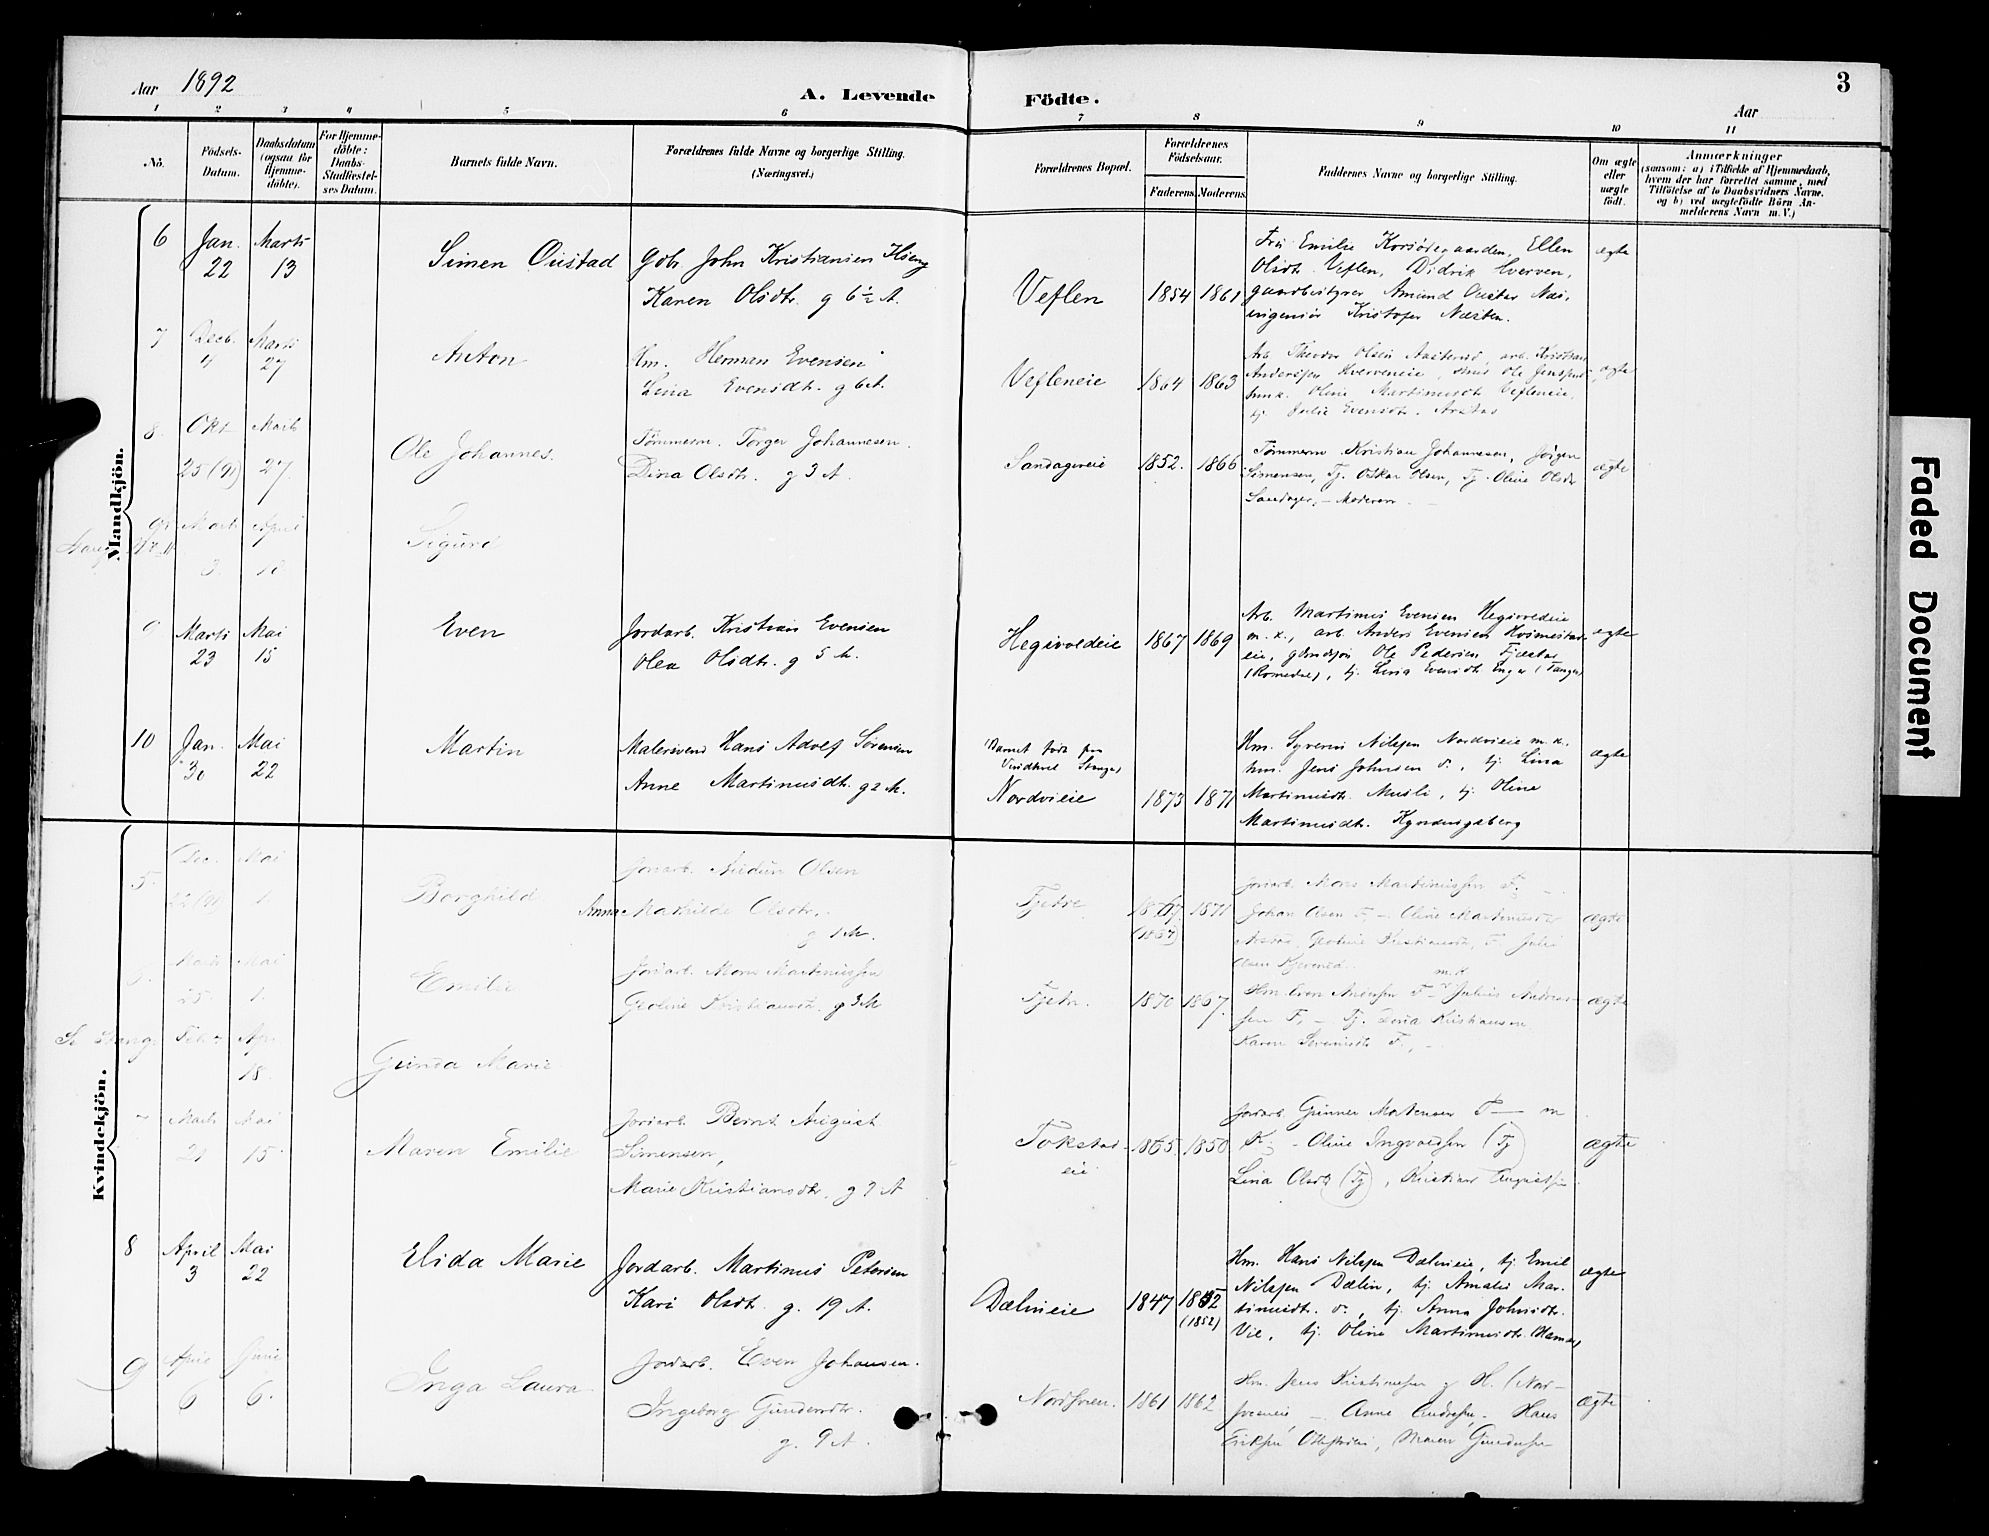 Aar 1892
A. Levende Födte.
Aar
3
1 2 3 4 5 6 7 8 9 10 11
No.
Födsels-
Datum.
Daabsdatum
(ogsaa for
Hjemme-
döbte).
For Hjemme-
döbte:
Daabs-
Stadfæstel-
ses Datum.
Barnets fulde Navn.
Forældrenes fulde Navne og borgerlige Stilling.
(Næringsvei.)
Forældrenes Bopæl.
Forældrenes
Födselsaar.
Faderens. Moderens.
Faddernes Navne og borgerlige Stilling.
Om ægte
eller
uægte
födt.
Anmærkninger
(saasom: a) i Tilfælde af Hjemmedaab,
hvem der har forrettet samme, med
Tilföielse af to Daabsvidners Navne.
og b) ved uægtefödte Börn An-
melderens Navn m. V.)
Mandkjön.
6
Jan. 22
Marts 13
Simen Oustad
Gbr. John Kristiansen
Karen Olsdtr. g 6½ A.
Veflen
1854 1861
Emilie Korsödegaarden, Ellen
Olsdtr. Veflen, Didrik Hverven,
gaardbestyrer Amund
ingeniör Kristofer Næsten.
ægte
7
Decb. 4
Marts 27
Anton
Hm. Herman Evensen
Lina Evensdtr. g 6 A.
Vefleneie
1864 1863
Arb. Theodor Olsen arb. Kristian
Anderssen Hververneie, Ole
Oline Martinusdtr. Vefleneie,
tj. Julie Evensdtr.
ægte
8.
Okt. 25 (91)
Marts 27.
Ole Johannes.
Tömmerm. Torger Johannesen.
Dina Olsdtr. g 3 A.
Sandagereie
1852. 1866
Tömmerm Kristian Johannesen, Jörgen
Simensen, Tj. Oskar Olsen, Tj. Oline Olsdtr
Sandager, – Moderen. –
ægte
Marts 3.
April 10
Sigurd
9
Marts 23
Mai 15
Even
Jordarb. Kristian Evensen
Olea Olsdtr. g 5 A.
Hegivoldeie
1867 1869
Arb. Martinus Evensen Hegivoldeie
m. k., arb. Anders Evensen
eie, Ole Pedersen
(Romedal), tj. Lina Evensdtr. Enger (Tangen)
ægte
10
Jan. 30
Mai 22
Martin
Malersvend Hans Adolf Sörensen
Anne Martinusdtr. g 2 A.
(Barnet födt paa
Stange)
Nordvieie
1873 1871
Hm. Syverin Nilssen Nordvieie m. k.,
hm. Jens Johnsen tj. Lina
Martinusdtr. Musli, tj. Oline
Martinusdtr. Kyndmigsberg
ægte
Kvindekjön.
5.
Dec. 22 (91)
Mai 1.
Borghild
Jordarb. Audun Olsen
Anna Mathilde Olsdtr.
g 1 A.
Fjetre
1867 1871
(1867)
Jordarb. Mons Martinussen F. –
Johan Olsen F, – Oline Martinusdtr
Geoline Kristiansdtr, F. Julie
Olsen
ægte
6.
Marts 25.
Mai 1.
Emilie
Jordarb. Mons Martinussen
Geoline Kristiansdtr. g 3 A
Fjetre.
1870 1867.
m. K
Hm. Even Andersen F – Julius Andreas-
sen F, – Tj. Dina Kristiansen
Karen Sörensdtr F., –
ægte
Febr.
Apr. 18.
Gunda Marie
7
Marts 21
Mai 15.
Maren Emilie
Jordarb. Bernt August
Simensen,
Marie Kristiansdtr. g 7 A
Tokstad-
eie
1865. 1850
Jordarb. Gunner Mortensen T – m
K. – Oline Ingvaldsen (Tj)
Lina Olsdtr (Tj), Kristian Augustsen
ægte
8
April 3
Mai 22
Elida Marie
Jordarb. Martinus Petersen
Kari Olsdtr. g. 19 A.
Dælineie
1847 1852
(1852)
Hm. Hans Nilssen Dælineie, tj. Emil
Nilssen Dælin, tj. Amalie Mar-
tinusdtr. d., tj. Anna Johnsdtr.
Vie, tj. Oline Martinusdtr. (Hamar)
ægte
9
April 6
Juni 6.
Inga Laura
Jordarb. Even Johansen.
Ingeborg Gundersdtr.
g. 9 A.
Nordsveen.
1861 1862
Hm. Jens Kristiansen g H. (Nord-
sveeneie, – Anne Andersen, Hans
Eriksen Maren Gundersen
ægte
Faded Document